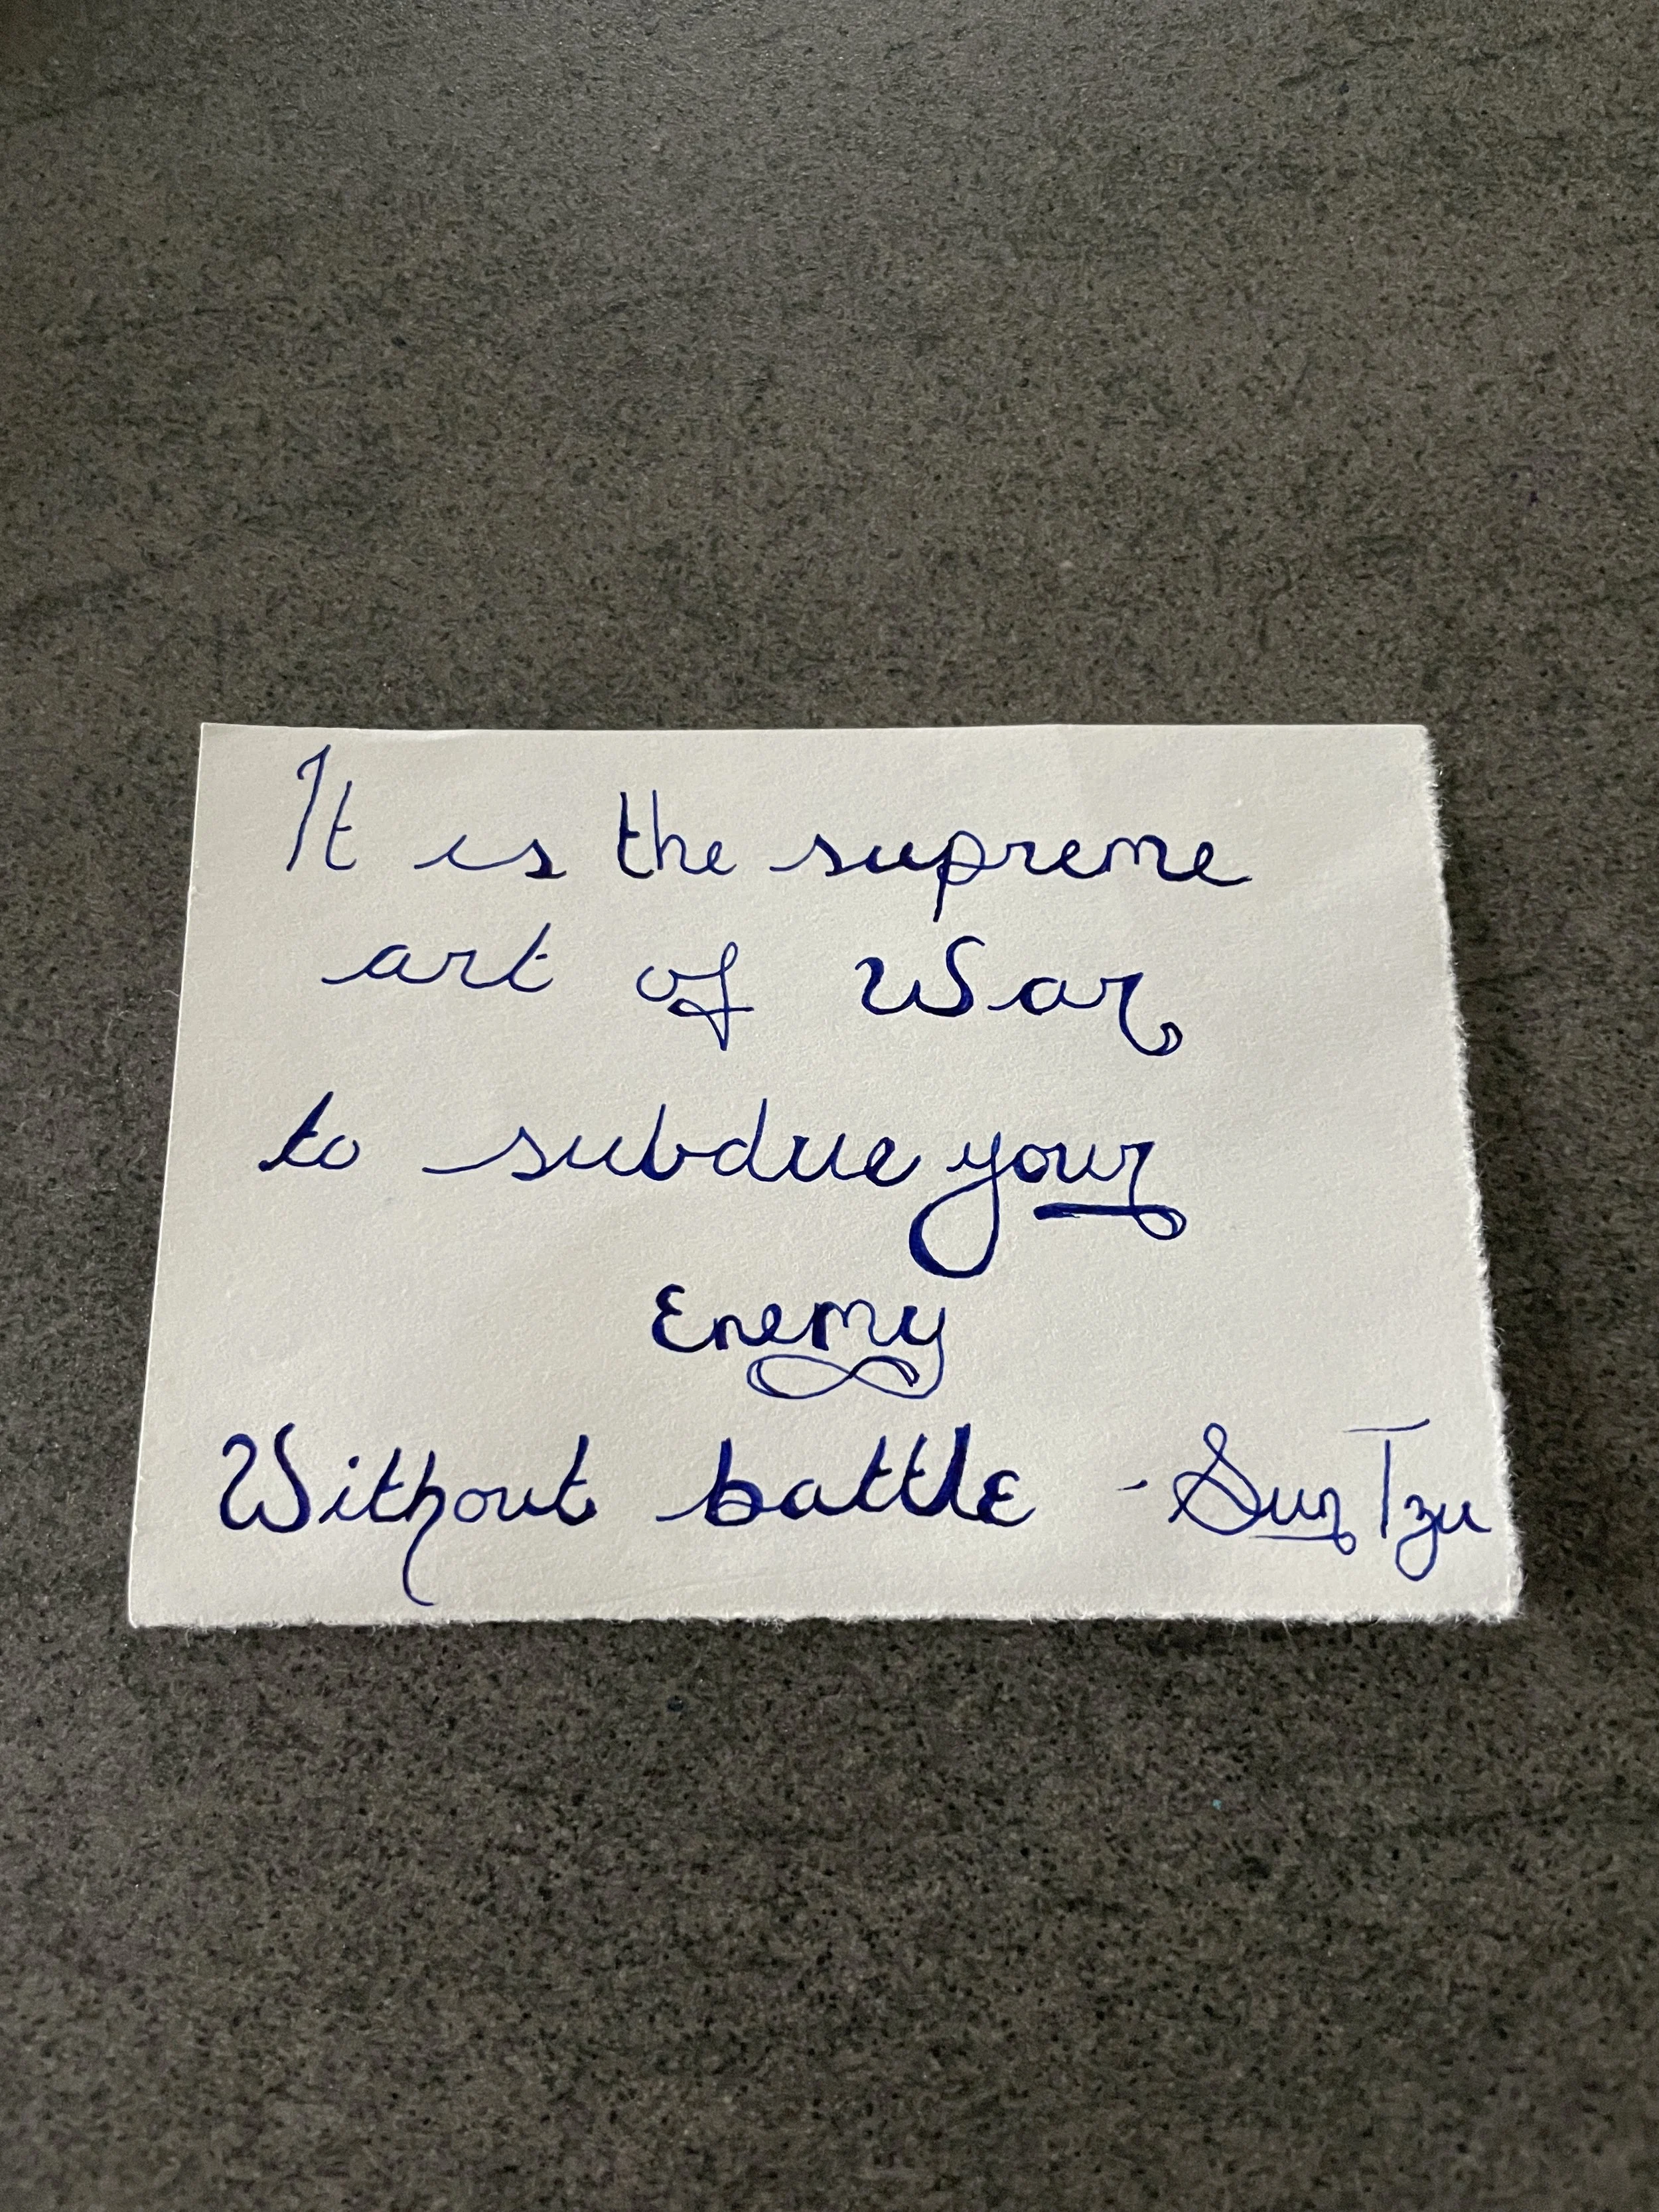 It is the supreme
art of War
to subdue your
Enemy
Without battle - Sun Tzu